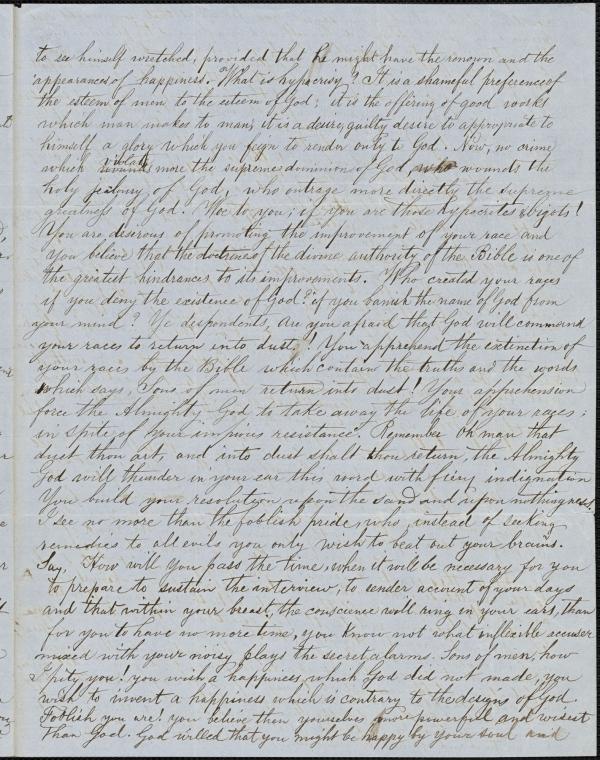 to see himself wretched, provided that he might have the renown and the
appearances of happiness. What is hypocrisy? It is a shameful preference of
the esteem of men, to the esteem of God; it is the offering of good works
which man makes to man; it is a desire, guilty desire to appropriate to
himself a glory which you feign to render only to God. Now, no crime
which violates more the supreme dominion of God, who wounds the
holy jealousy of God, who outrage more directly the Supreme
greatness of God. Woe to you; if you are those hypocrites & bigots!
You are desirous of promoting the improvement of your race and
you believe that the doctrine of the divine authority of the Bible is one of
the greatest hindrances to its improvements. Who created your races
if you deny the existence of God? if you banish the name of God from
your mind? Ye despondents, are you afraid that God will command
your races to return into dust,! You apprehend the extinction of
your races by the Bible which contain the truths and the words
which says, Sons of men return into dust! Your apprehension
force the Almighty God to take away the life of your races;
in spite of your impious resistance. Remember Oh man that
dust thou art, and into dust shalt thou return, the Almighty
God will thunder in your ear this word with fiery indignation
You build your resolution upon the sand and upon nothingness!
I see no more than the foolish pride, who, instead of seeking
remedies to all evils you only wish to beat out your brains.
Say, How will you pass the time, when it will be necessary for you
to prepare to sustain the interview, to render account of your days
and that within your breast, the conscience will ring in your ears, than
for you to have no more time, you know not what inflexible accuser
mixed with your noisy plays the secret alarms. Sons of men, how
I pity you! you wish a happiness which God did not made, you
wish to invent a happiness which is contrary to the designs of God.
Foolish you are! you believe then yourselves more powerful and wisest
than God. God willed that you might be happy by your soul and